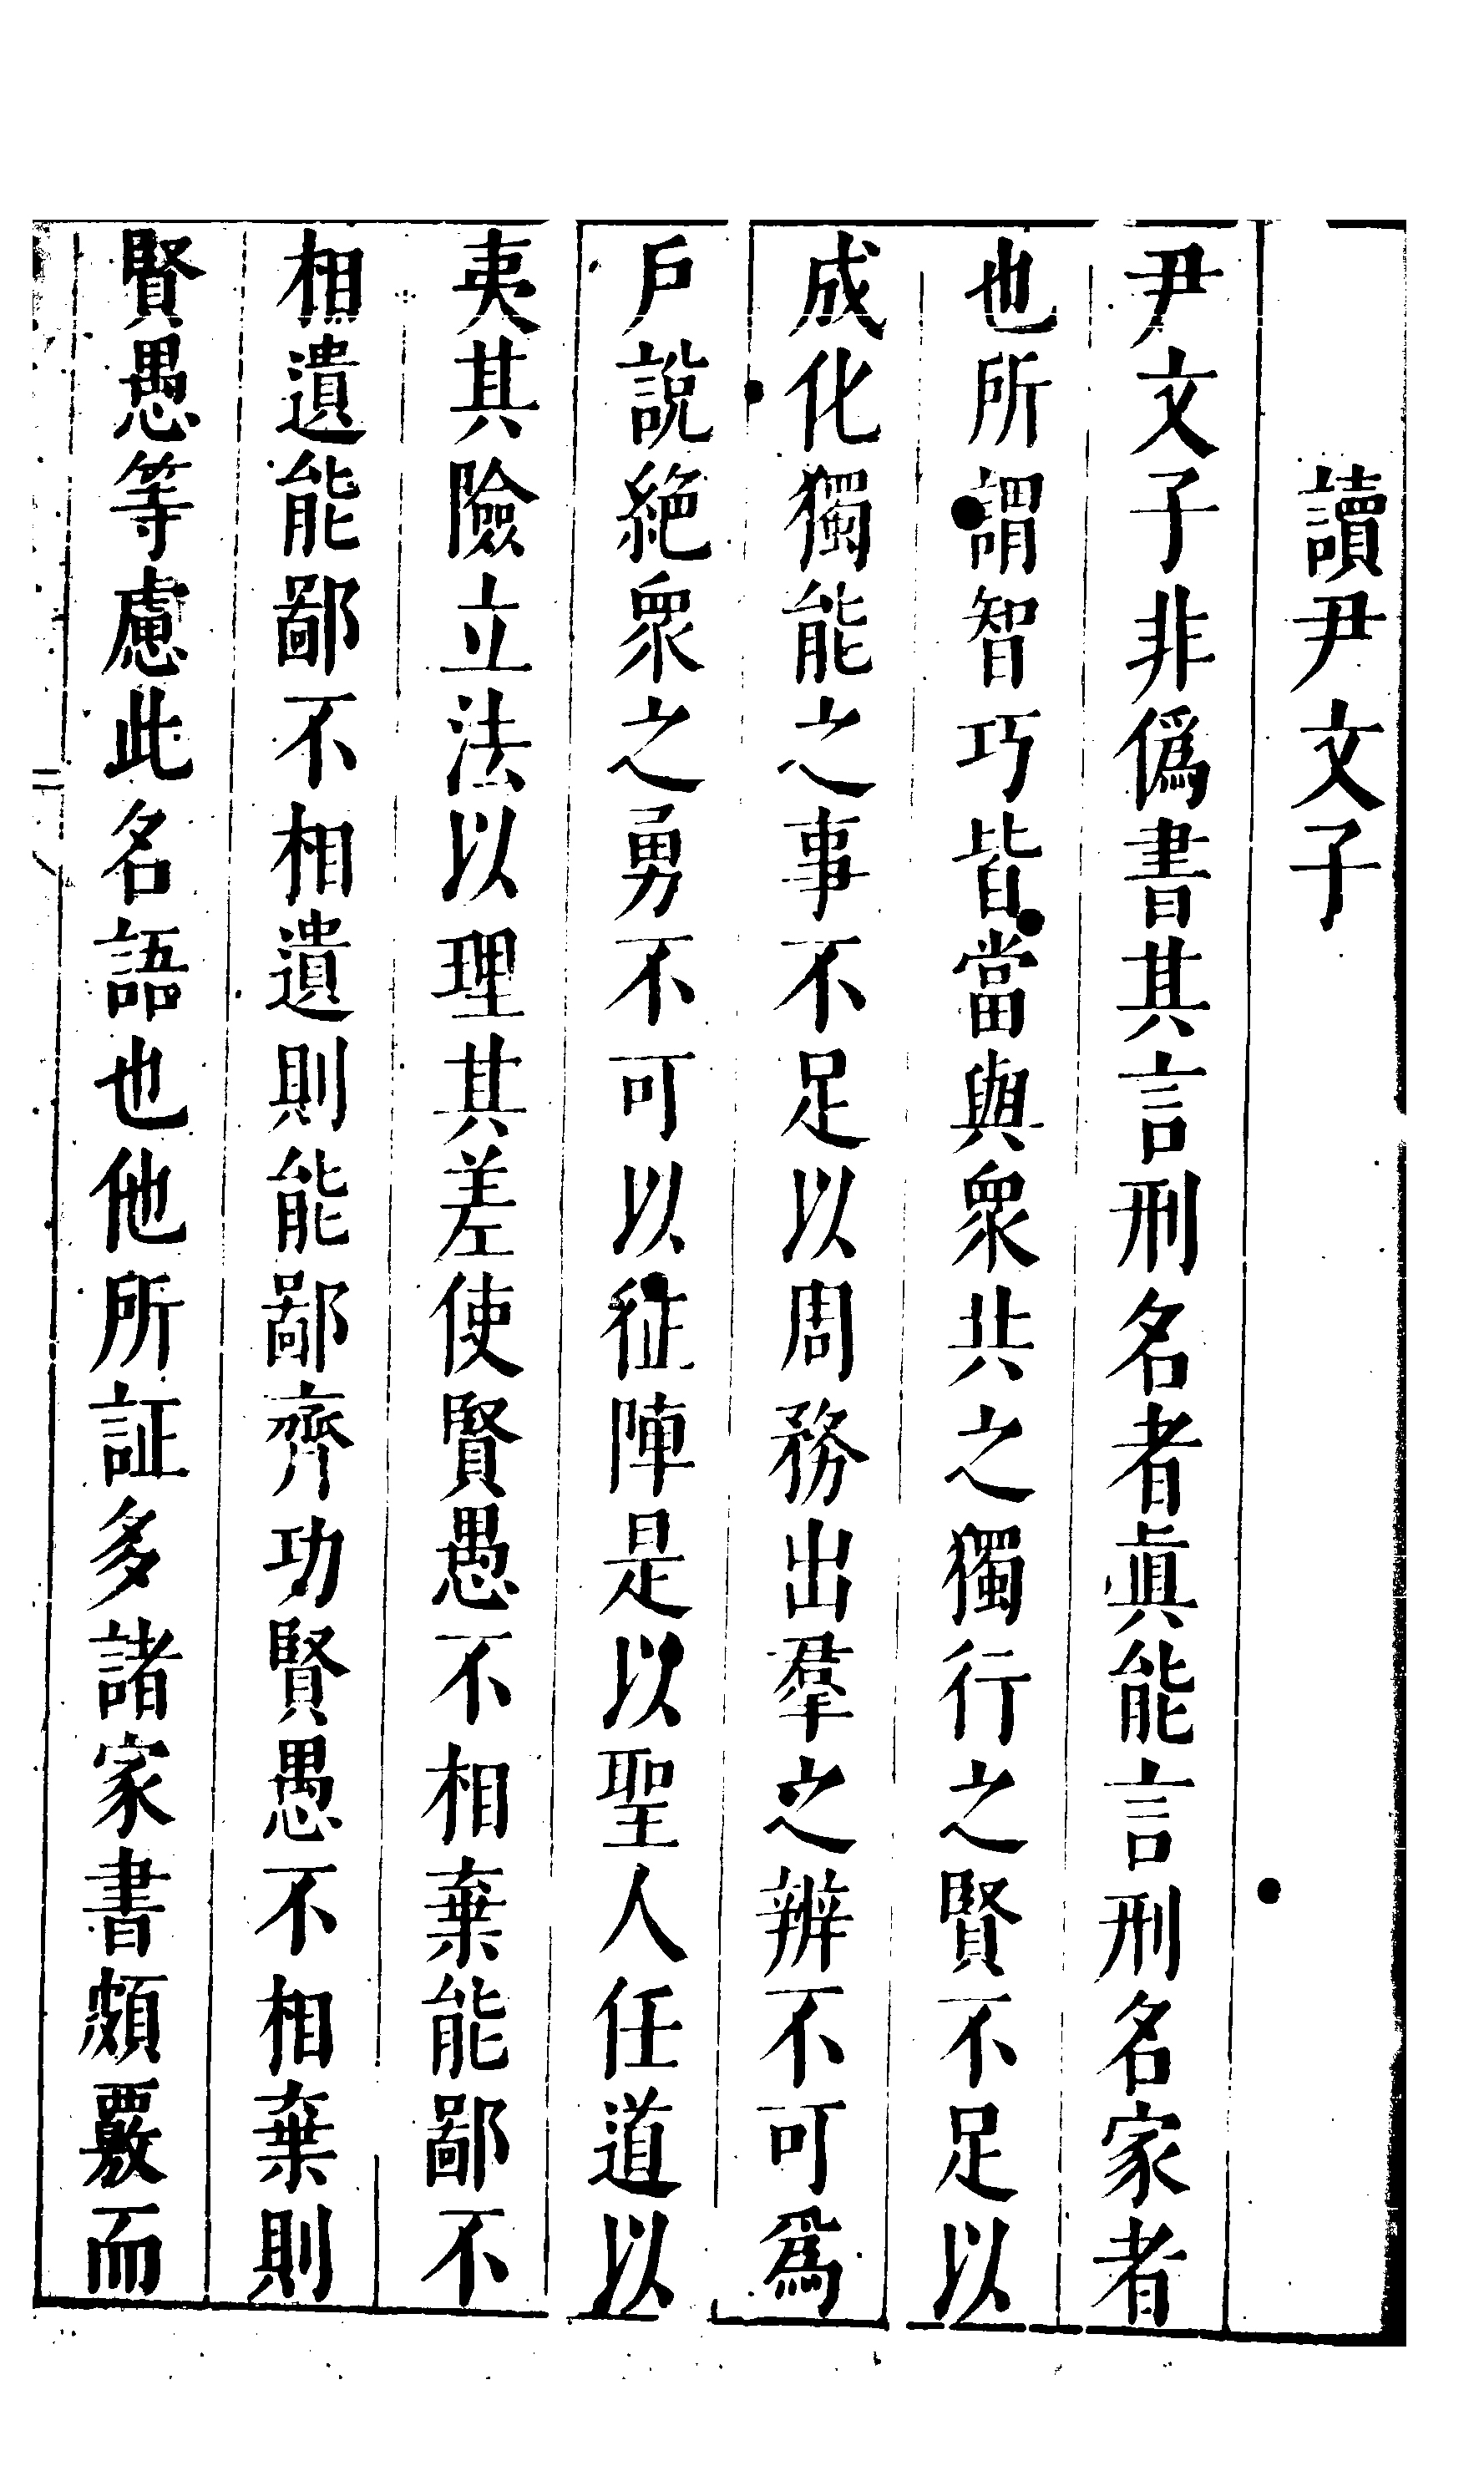 讀尹文子
尹文子非僞書其言刑名者眞能言刑名家者
也所謂智巧皆當與衆共之獨行之賢不足以
成化獨能之事不足以周務出羣之辨不可爲
戶說絕衆之勇不可以征陣是以聖人任道以
夷其險立法以理其差使賢愚不相棄能鄙不
相遺能鄙不相遺則能鄙齊功賢愚不相棄則
賢愚等慮此名語也他所証多諸家書頗覈而
二